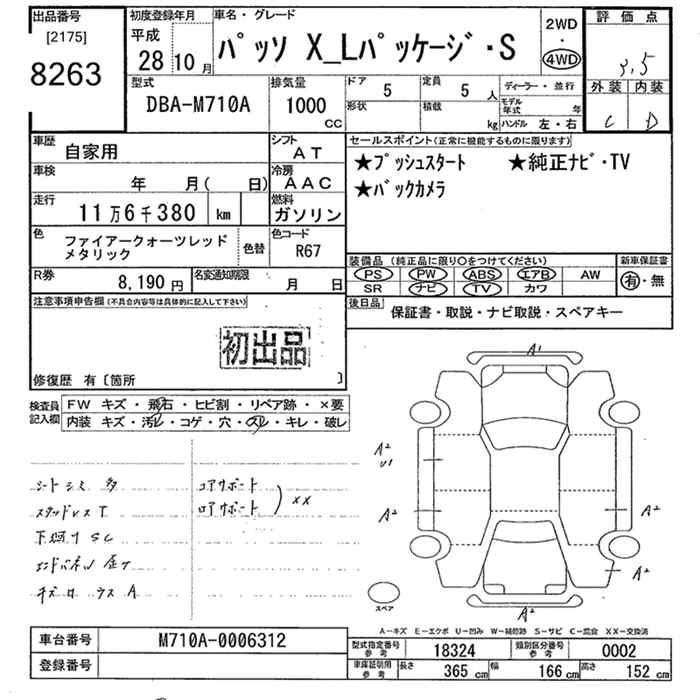 出品番号
[2175]
8263
初度登録年月
平成
28 10 月
車名・グレード
パッソ X_Lパッケージ・S
2WD
・
4WD
評価点
3.5
外装 内装
C D
型式
DBA-M710A
排気量
1000
CC
ドア
5
定員
5 人
形状
積載
kg
ディーラー・並行
モデル年式 年
ハンドル 左・右
車歴
自家用
シフト
AT
車検
年 月( 日)
冷房
AAC
走行
11万6千380 km
燃料
ガソリン
色
ファイアークォーツレッド
メタリック
色替
色コード
R67
R券
8,190 円
名変通知期限
月 日
セールスポイント(正常に機能するものに限ります)
★プッシュスタート ★純正ナビ・TV
★バックカメラ
装備品 (純正品に限り○をつけてください)
PS PW ABS エアB AW
SR ナビ TV カワ
新車保証書
有・無
後日品
保証書・取説・ナビ取説・スペアキー
注意事項申告欄(不具合内容等は具体的に記入して下さい)
初出品
修復歴 有〔箇所 〕
検査員記入欄
FW キズ・飛石・ヒビ割・リペア跡・×要
内装 キズ・汚レ・コゲ・穴・スレ・キレ・破レ
シートシミ 多
スタッドレスT
下廻り SC
コアサポート
ロアサポート
XX
A1
A2
U1
A2
A2
A2
A2
スペア
A-キズ E-エクボ U-凹み W-補修跡 S-サビ C-腐食 XX-交換済
車台番号
M710A-0006312
登録番号
型式指定番号 参考
18324
類別区分番号 参考
0002
車庫証明用 参考
長さ 365 cm 幅 166 cm 高さ 152 cm